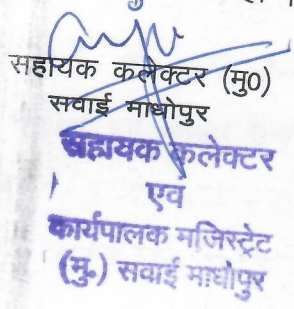 सहायक कलेक्टर (मु0)
सवाई माधोपुर
सहायक कलेक्टर
एवं
कार्यपालक मजिस्ट्रेट
(मु.) सवाई माधोपुर